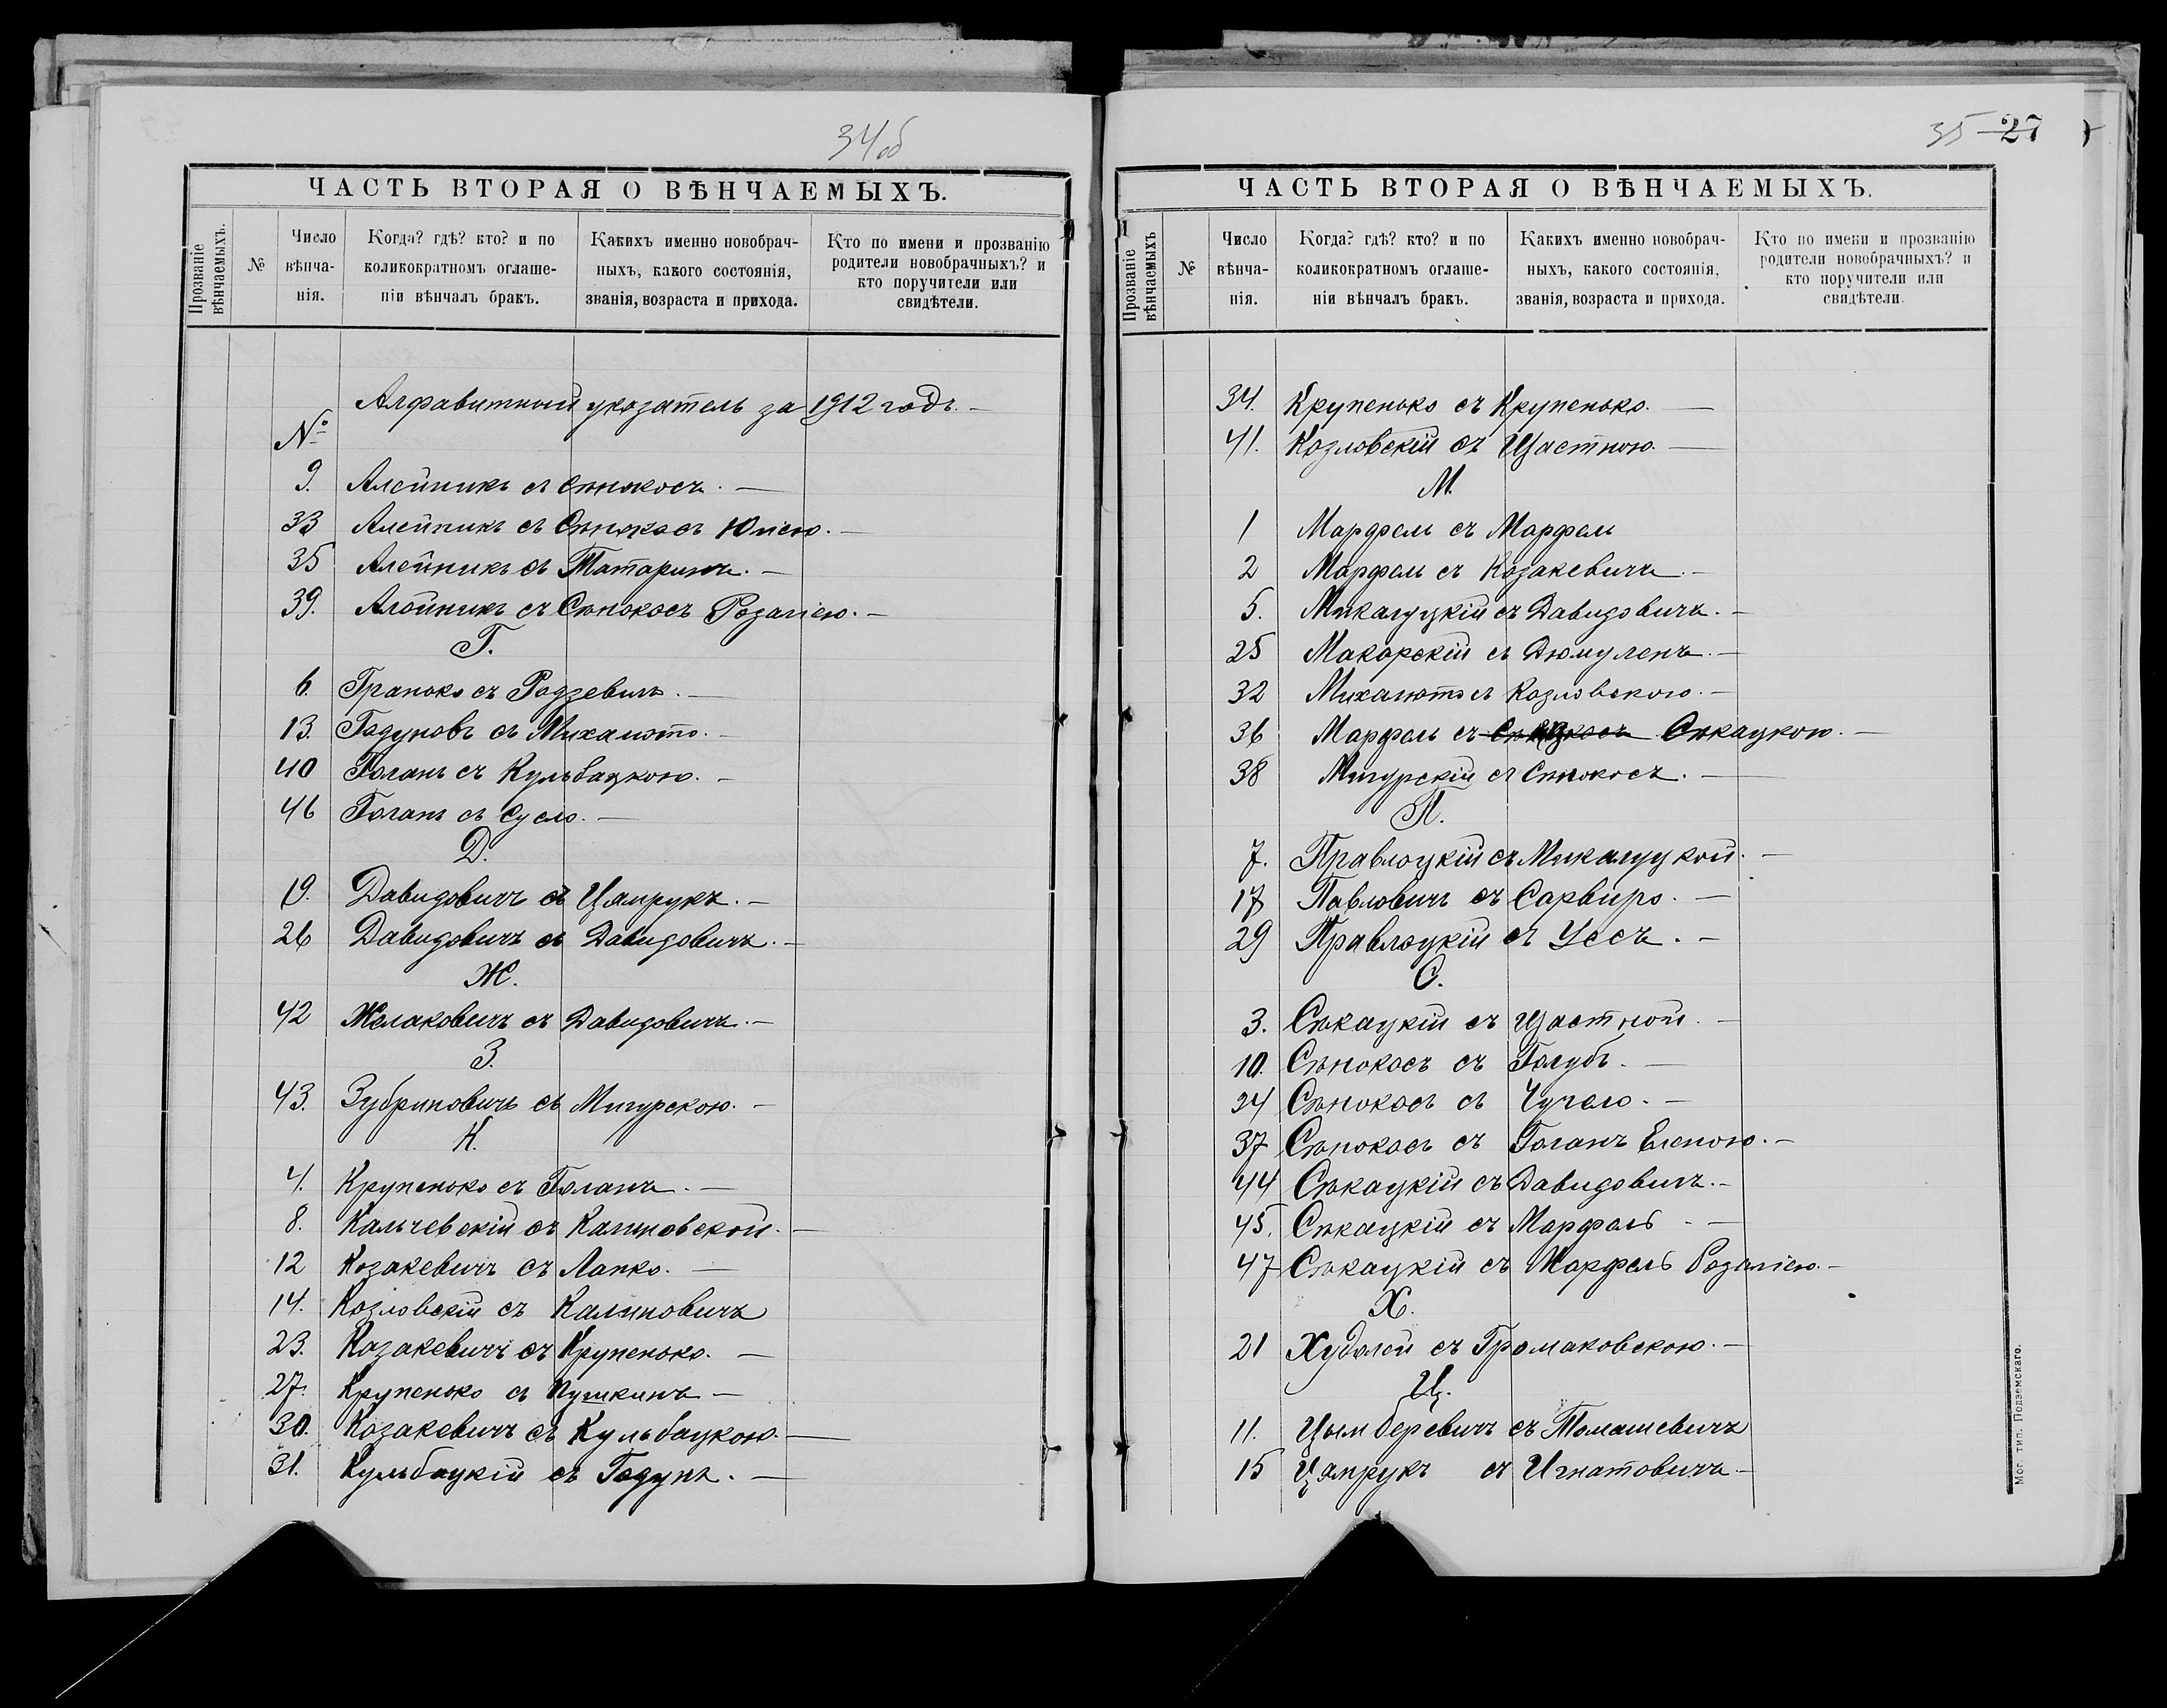 34об
ЧАСТЬ ВТОРАЯ О ВѢНЧАЕМЫХЪ.
Прозваніе вѣнчаемыхъ.
№
Число вѣнча- нія.
Когда? гдѣ? кто? и по коликократномъ оглаше- ніи вѣнчалъ бракъ.
Какихъ именно новобрач- ныхъ, какого состоянія, званія, возраста и прихода.
Кто по имени и прозванію родители новобрачныхъ? и кто поручители или свидѣтели.
Алфавитный указатель за 1912 годъ. —
№
9. Алейникъ съ Сѣнокосъ. —
33 Алейникъ съ Сѣнокосъ Юліею. —
35 Алейникъ съ Татаринъ. —
39. Алейникъ съ Сѣнокосъ Розаліею. —
Г.
6. Гранько съ Родзевичъ. —
13. Годуновъ съ Михалюто. —
40 Гоганъ съ Кульбацкою. —
46 Гоганъ съ Сусло. —
Д.
19. Давидовичъ съ Цямрукъ. —
26 Давидовичъ съ Давидовичъ. —
Ж.
42 Желаковичъ съ Давидовичъ. —
З.
43. Зубриновичъ съ Мигурскою. —
К.
4. Крупенько съ Гоганъ. —
8. Кальчевскій съ Калиновской. —
12 Козакевичъ съ Лапко. —
14. Козловскій съ Калиновичъ
23. Казакевичъ съ Крупенько. —
27. Крупенько съ Пушкинъ —
30. Козакевичъ съ Кульбацкою. —
31. Кульбацкій съ Годунъ. —
35 27
ЧАСТЬ ВТОРАЯ О ВѢНЧАЕМЫХЪ.
Прозваніе вѣнчаемыхъ
№
Число вѣнча- нія.
Когда? гдѣ? кто? и по коликократномъ оглаше- ніи вѣнчалъ бракъ.
Какихъ именно новобрач- ныхъ, какого состоянія, званія, возраста и прихода.
Кто по имени и прозванію родители новобрачныхъ? и кто поручители или свидѣтели.
34. Крупенько съ Крупенько. —
41. Козловскій съ Щастною. —
М.
1 Марфель съ Марфель
2 Марфель съ Козакевичъ. —
5. Микалуцкій съ Давидовичъ. —
25 Макарскій съ Дюмуленъ. —
32 Михалюто съ Козловскою. —
36 Марфель съ Сѣкацкою. —
38 Мигурскій съ Сѣнокосъ. —
П.
7. Правлоцкій съ Микалуцкой. —
17 Павловичъ съ Сарвиро. —
29 Правлоцкій съ Уссъ. —
С.
3. Сѣкацкій съ Щастной. —
10. Сѣнокосъ съ Голубъ. —
24 Сѣнокосъ съ Чучело. —
37 Сѣнокосъ съ Гоганъ Еленою. —
44 Сѣкацкій съ Давидовичъ. —
45. Сѣкацкій съ Марфель —
47 Сѣкацкій съ Марфель Розаліею. —
Х.
21 Худолей съ Громаковскою. —
Ц.
11. Цымберевичъ съ Томашевичъ
15 Цямрукъ съ Игнатовичъ —
Мог. тип. Подземскаго.